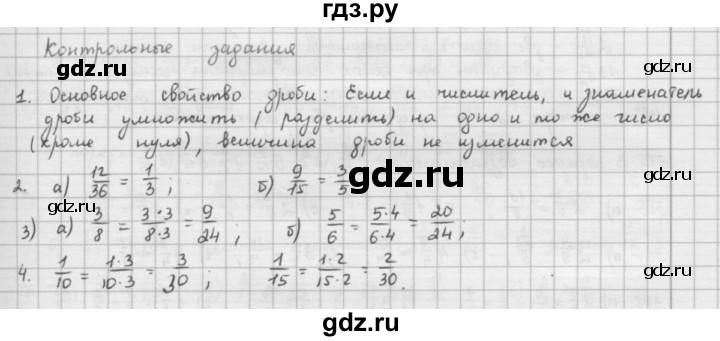 гдз.ру
Контрольные задания
gdz.ru gdz.ru
1. Основное свойство дроби: Если и числитель, и знаменатель
дроби умножить (разделить) на одно и то же число
(кроме нуля), величина дроби не изменится
gdz.ru gdz.ru
2. а) 12/36 = 1/3; б) 9/15 = 3/5
3) а) 3/8 = 3·3/8·3 = 9/24; б) 5/6 = 5·4/6·4 = 20/24;
gdz.ru gdz.ru
4. 1/10 = 1·3/10·3 = 3/30; 1/15 = 1·2/15·2 = 2/30.
gdz.ru gdz.ru
gdz.ru